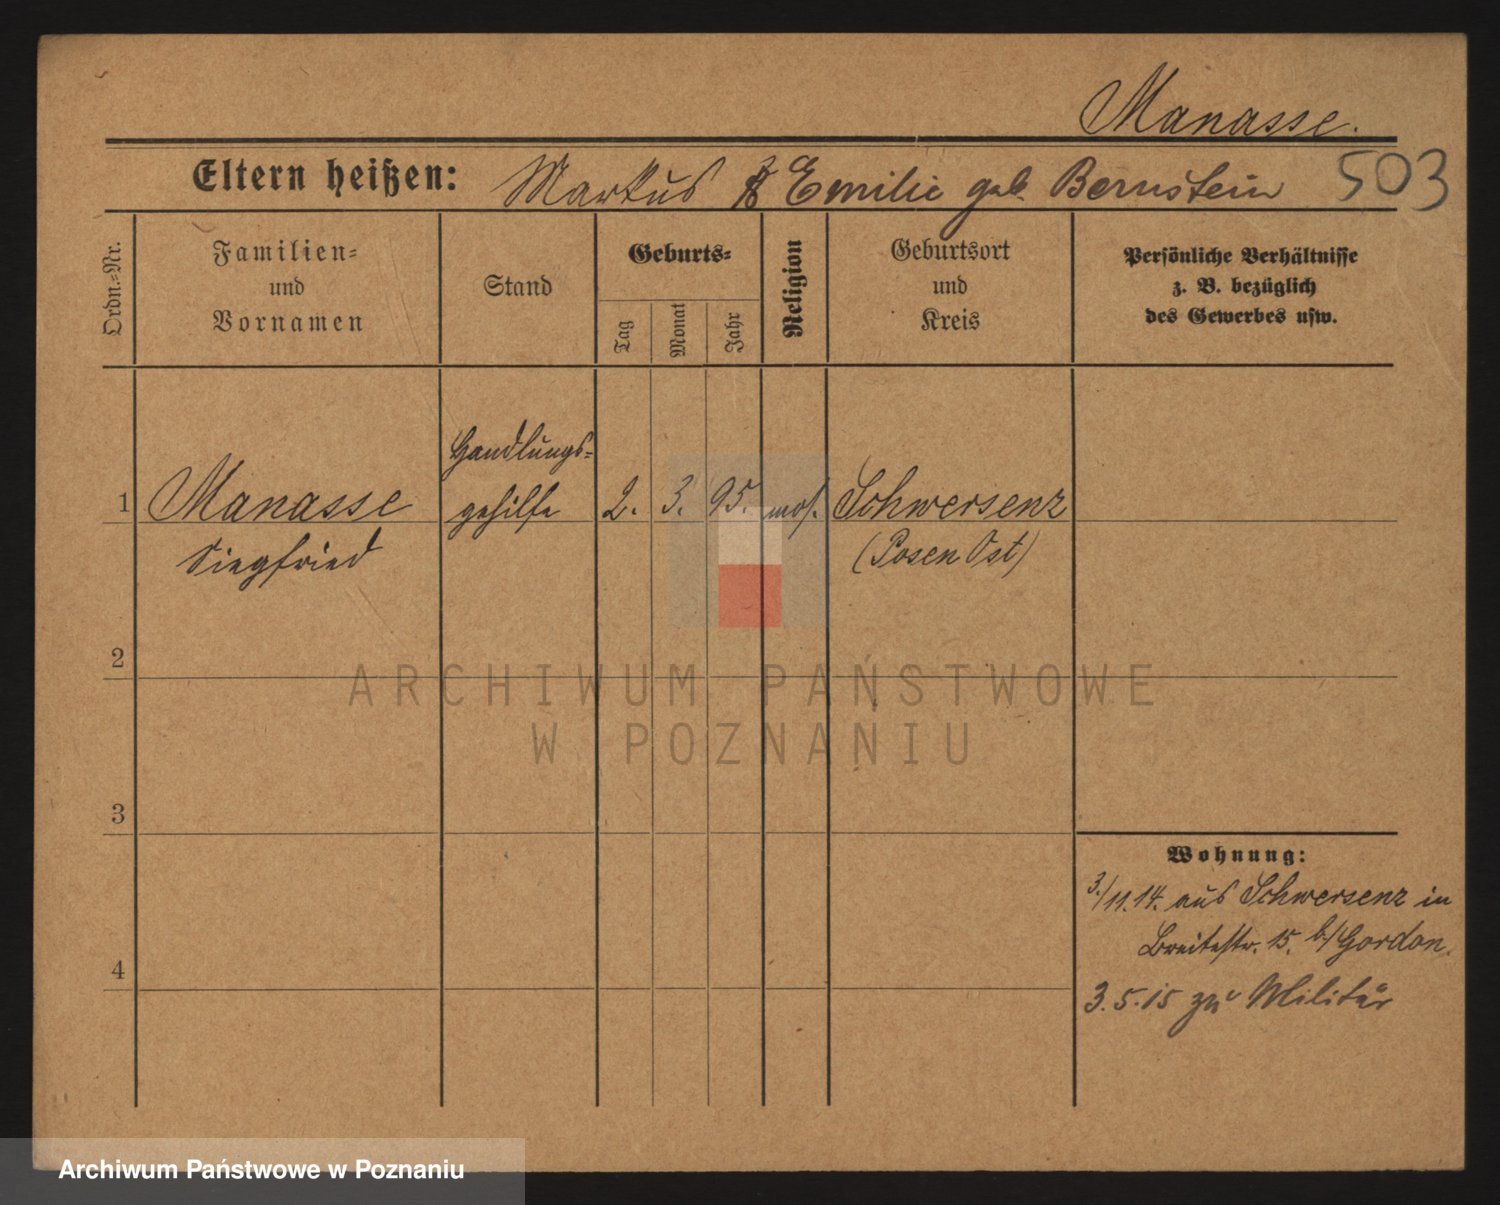 Manasse.
Eltern heißen: Markus & Emilie geb. Bernstein 503
Ordn.=Nr.
Familien=
und
Vornamen
Stand
Geburts=
Tag
Monat
Jahr
Religion
Geburtsort
und
Kreis
Persönliche Verhältnisse
z. B. bezüglich
des Gewerbes usw.
Handlungs=
1 Manasse gehilfe 2. 3. 95. mos. Schwersenz
Siegfried (Posen Ost)
2
ARCHIWUM PAŃSTWOWE
W POZNANIU
3
Wohnung:
3./11.14. aus Schwersenz in
Breitestr. 15. b/Gordon.
4
3.5.15 zu Militär
Archiwum Państwowe w Poznaniu